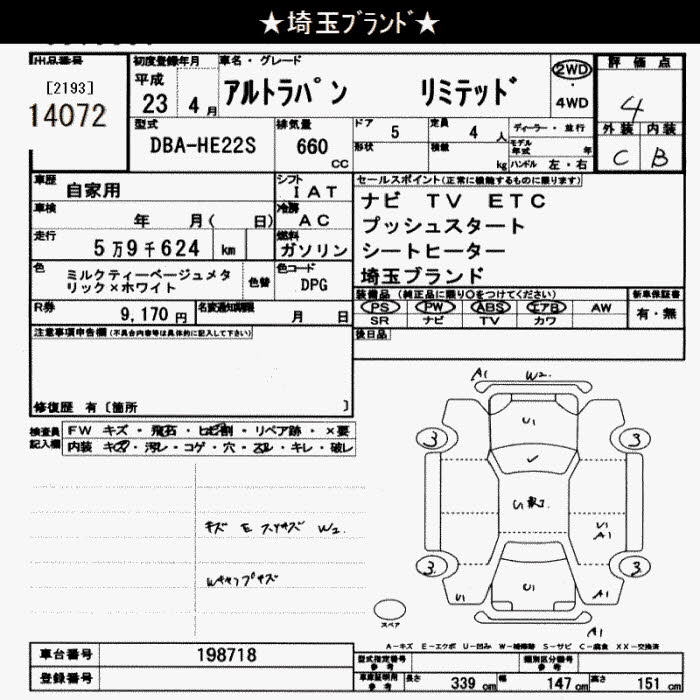 ★埼玉ﾌﾞﾗﾝﾄﾞ★
出品番号
[2193]
14072
初度登録年月
平成
23 4月
車名・グレード
アルトラパン リミテッド
2WD
・
4WD
評価点
4
外装 内装
C B
型式
DBA-HE22S
排気量
660
CC
ドア 5
定員 4 人
ディーラー・並行
形状
積載 kg
モデル年式 年
ハンドル 左・右
車歴 自家用
シフト IAT
セールスポイント(正常に機能するものに限ります)
車検 年 月( 日)
冷房 AC
ナビ TV ETC
プッシュスタート
シートヒーター
埼玉ブランド
走行 5万9千624 km
燃料 ガソリン
色 ミルクティーベージュメタ
リック×ホワイト
色替
色コード DPG
装備品 (純正品に限り○をつけてください)
新車保証書
PS PW ABS エアB AW
有・無
SR ナビ TV カワ
R券 9,170円
名変通知期限 月 日
注意事項申告欄(不具合内容等は具体的に記入して下さい)
後日品
修復歴 有〔箇所 〕
検査員
記入欄
FW キズ・飛石・ヒビ割・リペア跡・×要
内装 キズ・汚レ・コゲ・穴・スレ・キレ・破レ
A1 W2.
U1
3 3
U1
A1
3 3
U1 U1 A1
A1
キズ E スリキズ W2.
スペア
A-キズ E-エクボ U-凹み W-補修跡 S-サビ C-腐食 XX-交換済
車台番号 198718
型式指定番号
参考
類別区分番号
参考
登録番号
車庫証明用
参考
長さ 339 cm 幅 147 cm 高さ 151 cm